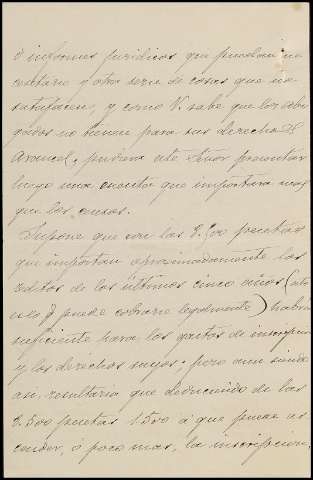 ó informes juridicos que puedan ne
cesitarse y otra serie de cosas que no
satisfacen, y como V. sabe que los abo
gados no tienen para sus derechos
Arancel, pudiera este Señor presentar
luego una cuenta que importara mas
que los censos.
Supone que con las 3.500 pesetas
que importan aproximadamente los
réditos de los últimos cinco años (
que puede cobrarse legalmente) habrá
suficiente para los gastos de inscripcion
y los derechos suyos; pero aun siendo
asi, resultaria que deduciendo de las
3.500 pesetas 1.500 á que puede as
cender, ó poco mas, la inscripcion,